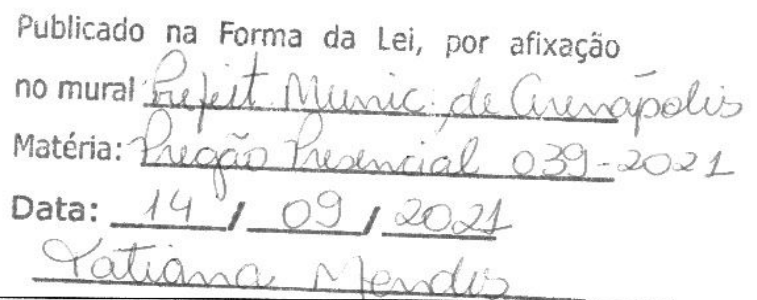 Publicado na Forma da Lei, por afixação
no mural Prefeit. Munic. de Arenápolis
Matéria: Pregão Presencial 039-2021
Data: 14 / 09 / 2021
Tatiana Mendes